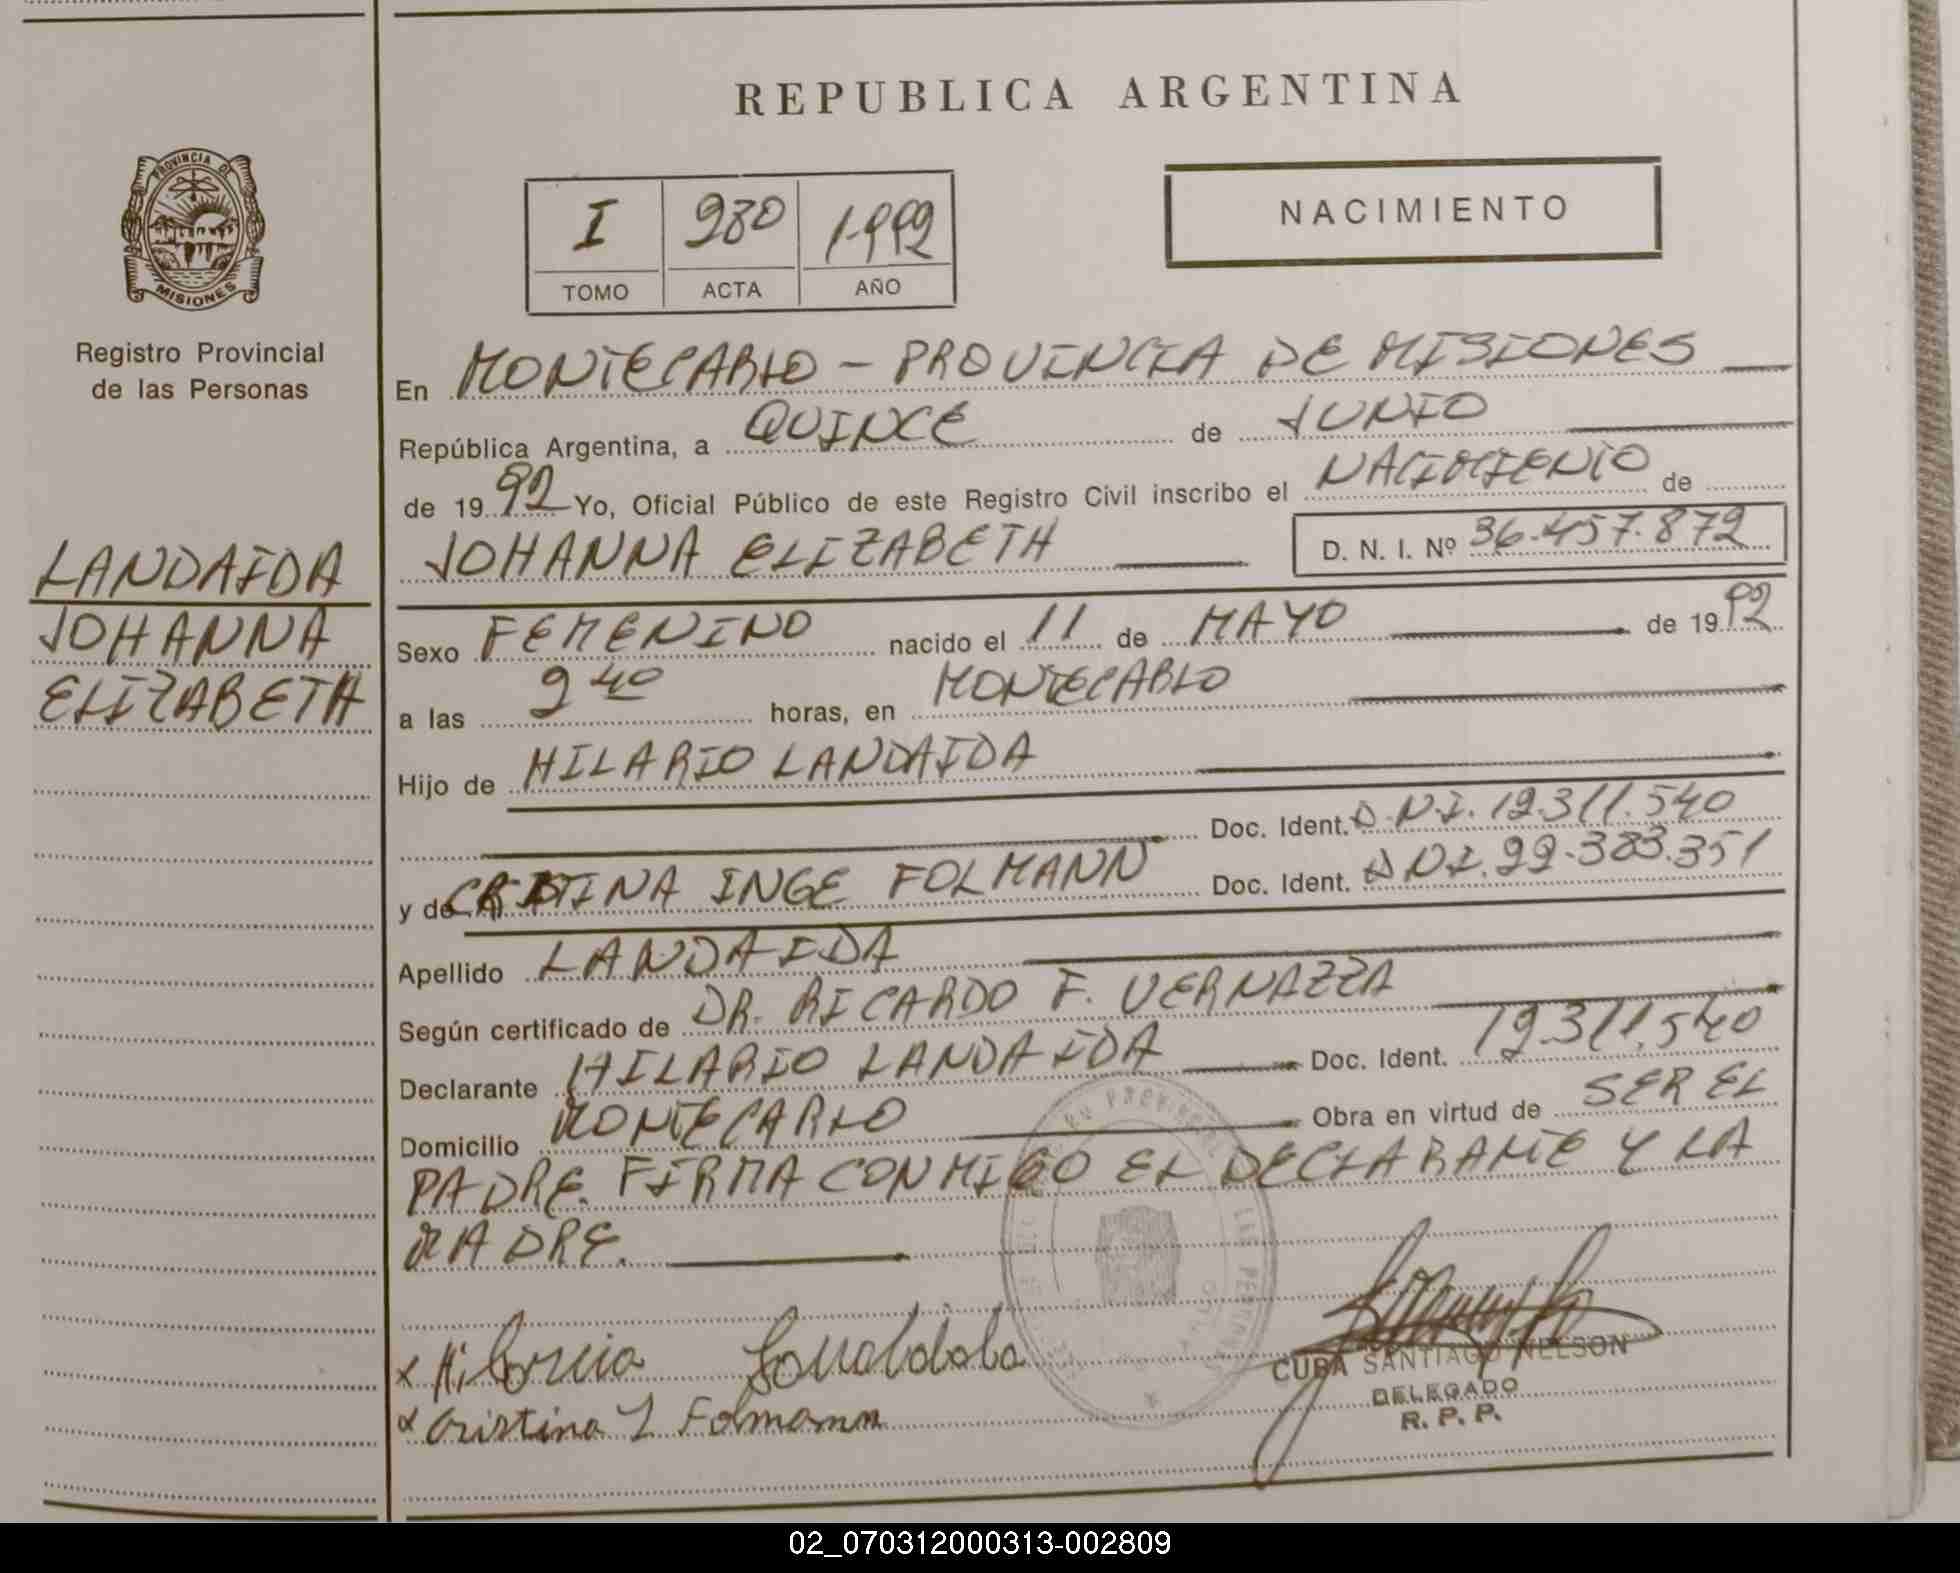 REPUBLICA ARGENTINA
PROVINCIA DE
MISIONES
Registro Provincial
de las Personas
I 280 1992
TOMO ACTA AÑO
NACIMIENTO
En MONTECARLO - PROVINCIA DE MISIONES
República Argentina, a QUINCE de JUNIO
de 1992 Yo, Oficial Público de este Registro Civil inscribo el NACIMIENTO de
JOHANNA ELIZABETH D. N. I. Nº 36.457.872
LANDAIDA
JOHANNA
ELIZABETH
Sexo FEMENINO nacido el 11 de MAYO de 1992
a las 2 40 horas, en MONTECARLO
Hijo de HILARIO LANDAIDA
Doc. Ident. D.N.I. 12.311.540
y de CRISTINA INGE FOLMANN Doc. Ident. D.N.I. 22.383.351
Apellido LANDAIDA
Según certificado de DR. RICARDO F. VERNAZZA
Declarante HILARIO LANDAIDA Doc. Ident. 12.311.540
Domicilio MONTECARLO Obra en virtud de SER EL
PADRE. FIRMA CONMIGO EL DECLARANTE Y LA
MADRE.
CUBA SANTIAGO NELSON
DELEGADO
R. P. P.
x Cristina I Folmann
02_070312000313-002809